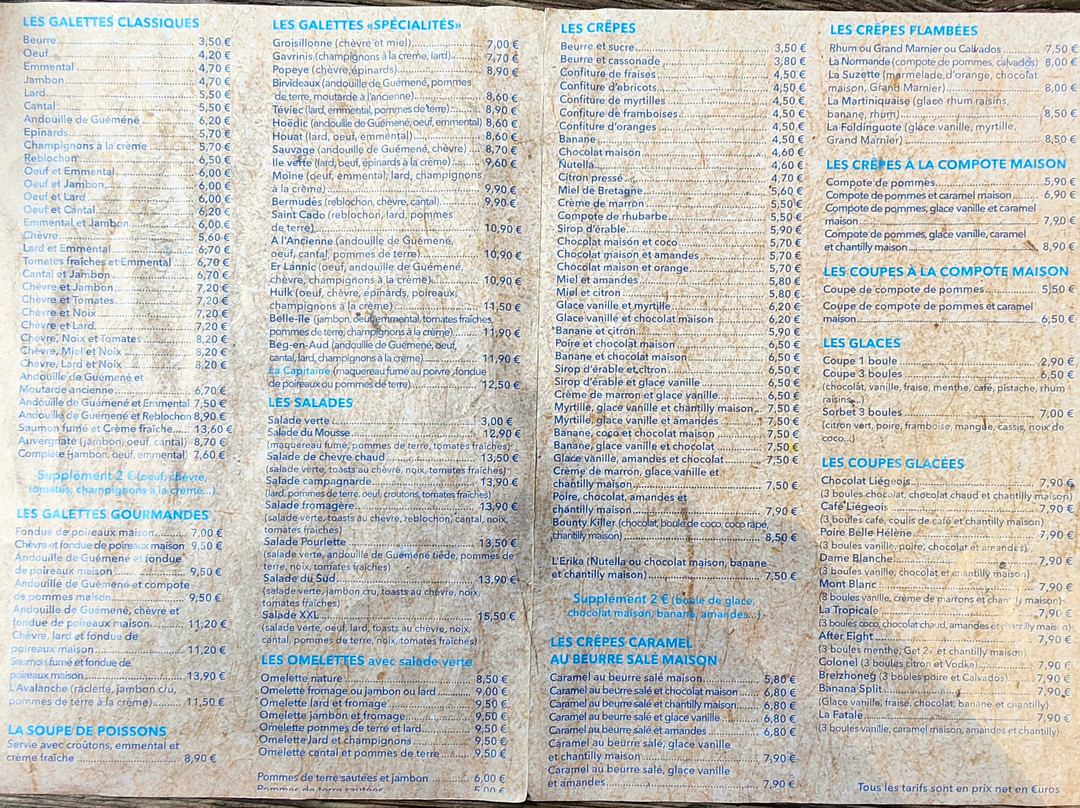 LES GALETTES CLASSIQUES
Beurre 3,50 €
Oeuf 4,20 €
Emmental 4,70 €
Jambon 4,70 €
Lard 5,50 €
Cantal 5,50 €
Andouille de Guémené 6,20 €
Epinards 5,70 €
Champignons à la crème 5,70 €
Reblochon 6,50 €
Oeuf et Emmental 6,00 €
Oeuf et Jambon 6,00 €
Oeuf et Lard 6,00 €
Oeuf et Cantal 6,20 €
Emmental et Jambon 6,00 €
Chèvre 5,60 €
Lard et Emmental 6,70 €
Tomates fraîches et Emmental 6,70 €
Cantal et Jambon 6,70 €
Chèvre et Jambon 7,20 €
Chèvre et Tomates 7,20 €
Chèvre et Noix 7,20 €
Chèvre et Lard 7,20 €
Chèvre, Noix et Tomates 8,20 €
Chèvre, Miel et Noix 8,20 €
Chèvre, Lard et Noix 8,20 €
Andouille de Guémené et
Moutarde ancienne 6,70 €
Andouille de Guémené et Emmental 7,50 €
Andouille de Guémené et Reblochon 8,90 €
Saumon fumé et Crème fraîche 13,60 €
Auvergnate (jambon, oeuf, cantal) 8,70 €
Complète (jambon, oeuf, emmental) 7,60 €
Supplément 2 € (oeuf, chèvre,
tomates, champignons à la crème...)
LES GALETTES GOURMANDES
Fondue de poireaux maison 7,00 €
Chèvre et fondue de poireaux maison 9,50 €
Andouille de Guémené et fondue
de poireaux maison 9,50 €
Andouille de Guémené et compote
de pommes maison 9,50 €
Andouille de Guémené, chèvre et
fondue de poireaux maison 11,20 €
Chèvre, lard et fondue de
poireaux maison 11,20 €
Saumon fumé et fondue de
poireaux maison 13,90 €
L'Avalanche (raclette, jambon cru,
pommes de terre à la crème) 11,50 €
LA SOUPE DE POISSONS
Servie avec croûtons, emmental et
crème fraîche 8,90 €
LES GALETTES «SPÉCIALITÉS»
Groisillonne (chèvre et miel) 7,00 €
Gavrinis (champignons à la crème, lard) 7,70 €
Popeye (chèvre, épinards) 8,90 €
Birvideaux (andouille de Guémené, pommes
de terre, moutarde à l'ancienne) 8,60 €
Téviec (lard, emmental, pommes de terre) 8,90 €
Hoëdic (andouille de Guémené, oeuf, emmental) 8,60 €
Houat (lard, oeuf, emmental) 8,60 €
Sauvage (andouille de Guémené, chèvre) 8,70 €
Ile verte (lard, oeuf, épinards à la crème) 9,60 €
Moine (oeuf, emmental, lard, champignons
à la crème) 9,90 €
Bermudes (reblochon, chèvre, cantal) 9,90 €
Saint Cado (reblochon, lard, pommes
de terre) 10,90 €
A l'Ancienne (andouille de Guémené,
oeuf, cantal, pommes de terre) 10,90 €
Er Lannic (oeuf, andouille de Guémené,
chèvre, champignons à la crème) 10,90 €
Hulk (oeuf, chèvre, épinards, poireaux,
champignons à la crème) 11,50 €
Belle-île (jambon, oeuf, emmental, tomates fraîches,
pommes de terre, champignons à la crème) 11,90 €
Beg-en-Aud (andouille de Guémené, oeuf,
cantal, lard, champignons à la crème) 11,90 €
La Capitaine (maquereau fumé au poivre, fondue
de poireaux ou pommes de terre) 12,50 €
LES SALADES
Salade verte 3,00 €
Salade du Mousse 12,90 €
(maquereau fumé, pommes de terre, tomates fraîches)
Salade de chèvre chaud 13,50 €
(salade verte, toasts au chèvre, noix, tomates fraîches)
Salade campagnarde 13,90 €
(lard, pommes de terre, oeuf, croutons, tomates fraîches)
Salade fromagère 13,90 €
(salade verte, toasts au chèvre, reblochon, cantal, noix,
tomates fraîches)
Salade Pourlette 13,50 €
(salade verte, andouille de Guémené tiède, pommes de
terre, noix, tomates fraîches)
Salade du Sud 13,90 €
(salade verte, jambon cru, toasts au chèvre, noix,
tomates fraîches)
Salade XXL 15,50 €
(salade verte, oeuf, lard, toasts au chèvre, noix,
cantal, pommes de terre, noix, tomates fraîches)
LES OMELETTES avec salade verte
Omelette nature 8,50 €
Omelette fromage ou jambon ou lard 9,00 €
Omelette lard et fromage 9,50 €
Omelette jambon et fromage 9,50 €
Omelette pommes de terre et lard 9,50 €
Omelette lard et champignons 9,50 €
Omelette cantal et pommes de terre 9,50 €
Pommes de terre sautées et jambon 6,00 €
Pommes de terre sautées 5,00 €
LES CRÊPES
Beurre et sucre 3,50 €
Beurre et cassonade 3,80 €
Confiture de fraises 4,50 €
Confiture d'abricots 4,50 €
Confiture de myrtilles 4,50 €
Confiture de framboises 4,50 €
Confiture d'oranges 4,50 €
Banane 4,50 €
Chocolat maison 4,60 €
Nutella 4,60 €
Citron pressé 4,70 €
Miel de Bretagne 5,60 €
Crème de marron 5,50 €
Compote de rhubarbe 5,50 €
Sirop d'érable 5,90 €
Chocolat maison et coco 5,70 €
Chocolat maison et amandes 5,70 €
Chocolat maison et orange 5,70 €
Miel et amandes 5,80 €
Miel et citron 5,80 €
Glace vanille et myrtille 6,20 €
Glace vanille et chocolat maison 6,20 €
Banane et citron 5,90 €
Poire et chocolat maison 6,50 €
Banane et chocolat maison 6,50 €
Sirop d'érable et citron 6,50 €
Sirop d'érable et glace vanille 6,50 €
Crème de marron et glace vanille 6,50 €
Myrtille, glace vanille et chantilly maison 7,50 €
Myrtille, glace vanille et amandes 7,50 €
Banane, coco et chocolat maison 7,50 €
Banane, glace vanille et chocolat 7,50 €
Glace vanille, amandes et chocolat 7,50 €
Crème de marron, glace vanille et
chantilly maison 7,50 €
Poire, chocolat, amandes et
chantilly maison 7,90 €
Bounty Killer (chocolat, boule de coco, coco rapé,
chantilly maison) 8,50 €
L'Erika (Nutella ou chocolat maison, banane
et chantilly maison) 7,50 €
Supplément 2 € (boule de glace,
chocolat maison, banane, amandes...)
LES CRÊPES CARAMEL
AU BEURRE SALÉ MAISON
Caramel au beurre salé maison 5,80 €
Caramel au beurre salé et chocolat maison 6,80 €
Caramel au beurre salé et chantilly maison 6,80 €
Caramel au beurre salé et glace vanille 6,80 €
Caramel au beurre salé et amandes 6,80 €
Caramel au beurre salé, glace vanille
et chantilly maison 7,90 €
Caramel au beurre salé, glace vanille
et amandes 7,90 €
LES CRÊPES FLAMBÉES
Rhum ou Grand Marnier ou Calvados 7,50 €
La Normande (compote de pommes, calvados) 8,00 €
La Suzette (marmelade d'orange, chocolat
maison, Grand Marnier) 8,00 €
La Martiniquaise (glace rhum raisins,
banane, rhum) 8,50 €
La Foldinguote (glace vanille, myrtille,
Grand Marnier) 8,50 €
LES CRÊPES À LA COMPOTE MAISON
Compote de pommes 5,90 €
Compote de pommes et caramel maison 6,90 €
Compote de pommes, glace vanille et caramel
maison 7,90 €
Compote de pommes, glace vanille, caramel
et chantilly maison 8,90 €
LES COUPES À LA COMPOTE MAISON
Coupe de compote de pommes 5,50 €
Coupe de compote de pommes et caramel
maison 6,50 €
LES GLACES
Coupe 1 boule 2,90 €
Coupe 3 boules 6,50 €
(chocolat, vanille, fraise, menthe, café, pistache, rhum
raisins...)
Sorbet 3 boules 7,00 €
(citron vert, poire, framboise, mangue, cassis, noix de
coco...)
LES COUPES GLACÉES
Chocolat Liégeois 7,90 €
(3 boules chocolat, chocolat chaud et chantilly maison)
Café Liégeois 7,90 €
(3 boules café, coulis de café et chantilly maison)
Poire Belle Hélène 7,90 €
(3 boules vanille, poire, chocolat et amandes)
Dame Blanche 7,90 €
(3 boules vanille, chocolat et chantilly maison)
Mont Blanc 7,90 €
(3 boules vanille, crème de marrons et chantilly maison)
La Tropicale 7,90 €
(3 boules coco, chocolat chaud, amandes et chantilly maison)
After Eight 7,90 €
(3 boules menthe, Get 27 et chantilly maison)
Colonel (3 boules citron et Vodka) 7,90 €
Breizhoneg (3 boules poire et Calvados) 7,90 €
Banana Split 7,90 €
(Glace vanille, fraise, chocolat, banane et chantilly)
La Fatale 7,90 €
(3 boules vanille, caramel maison, amandes et chantilly)
Tous les tarifs sont en prix net en €uros